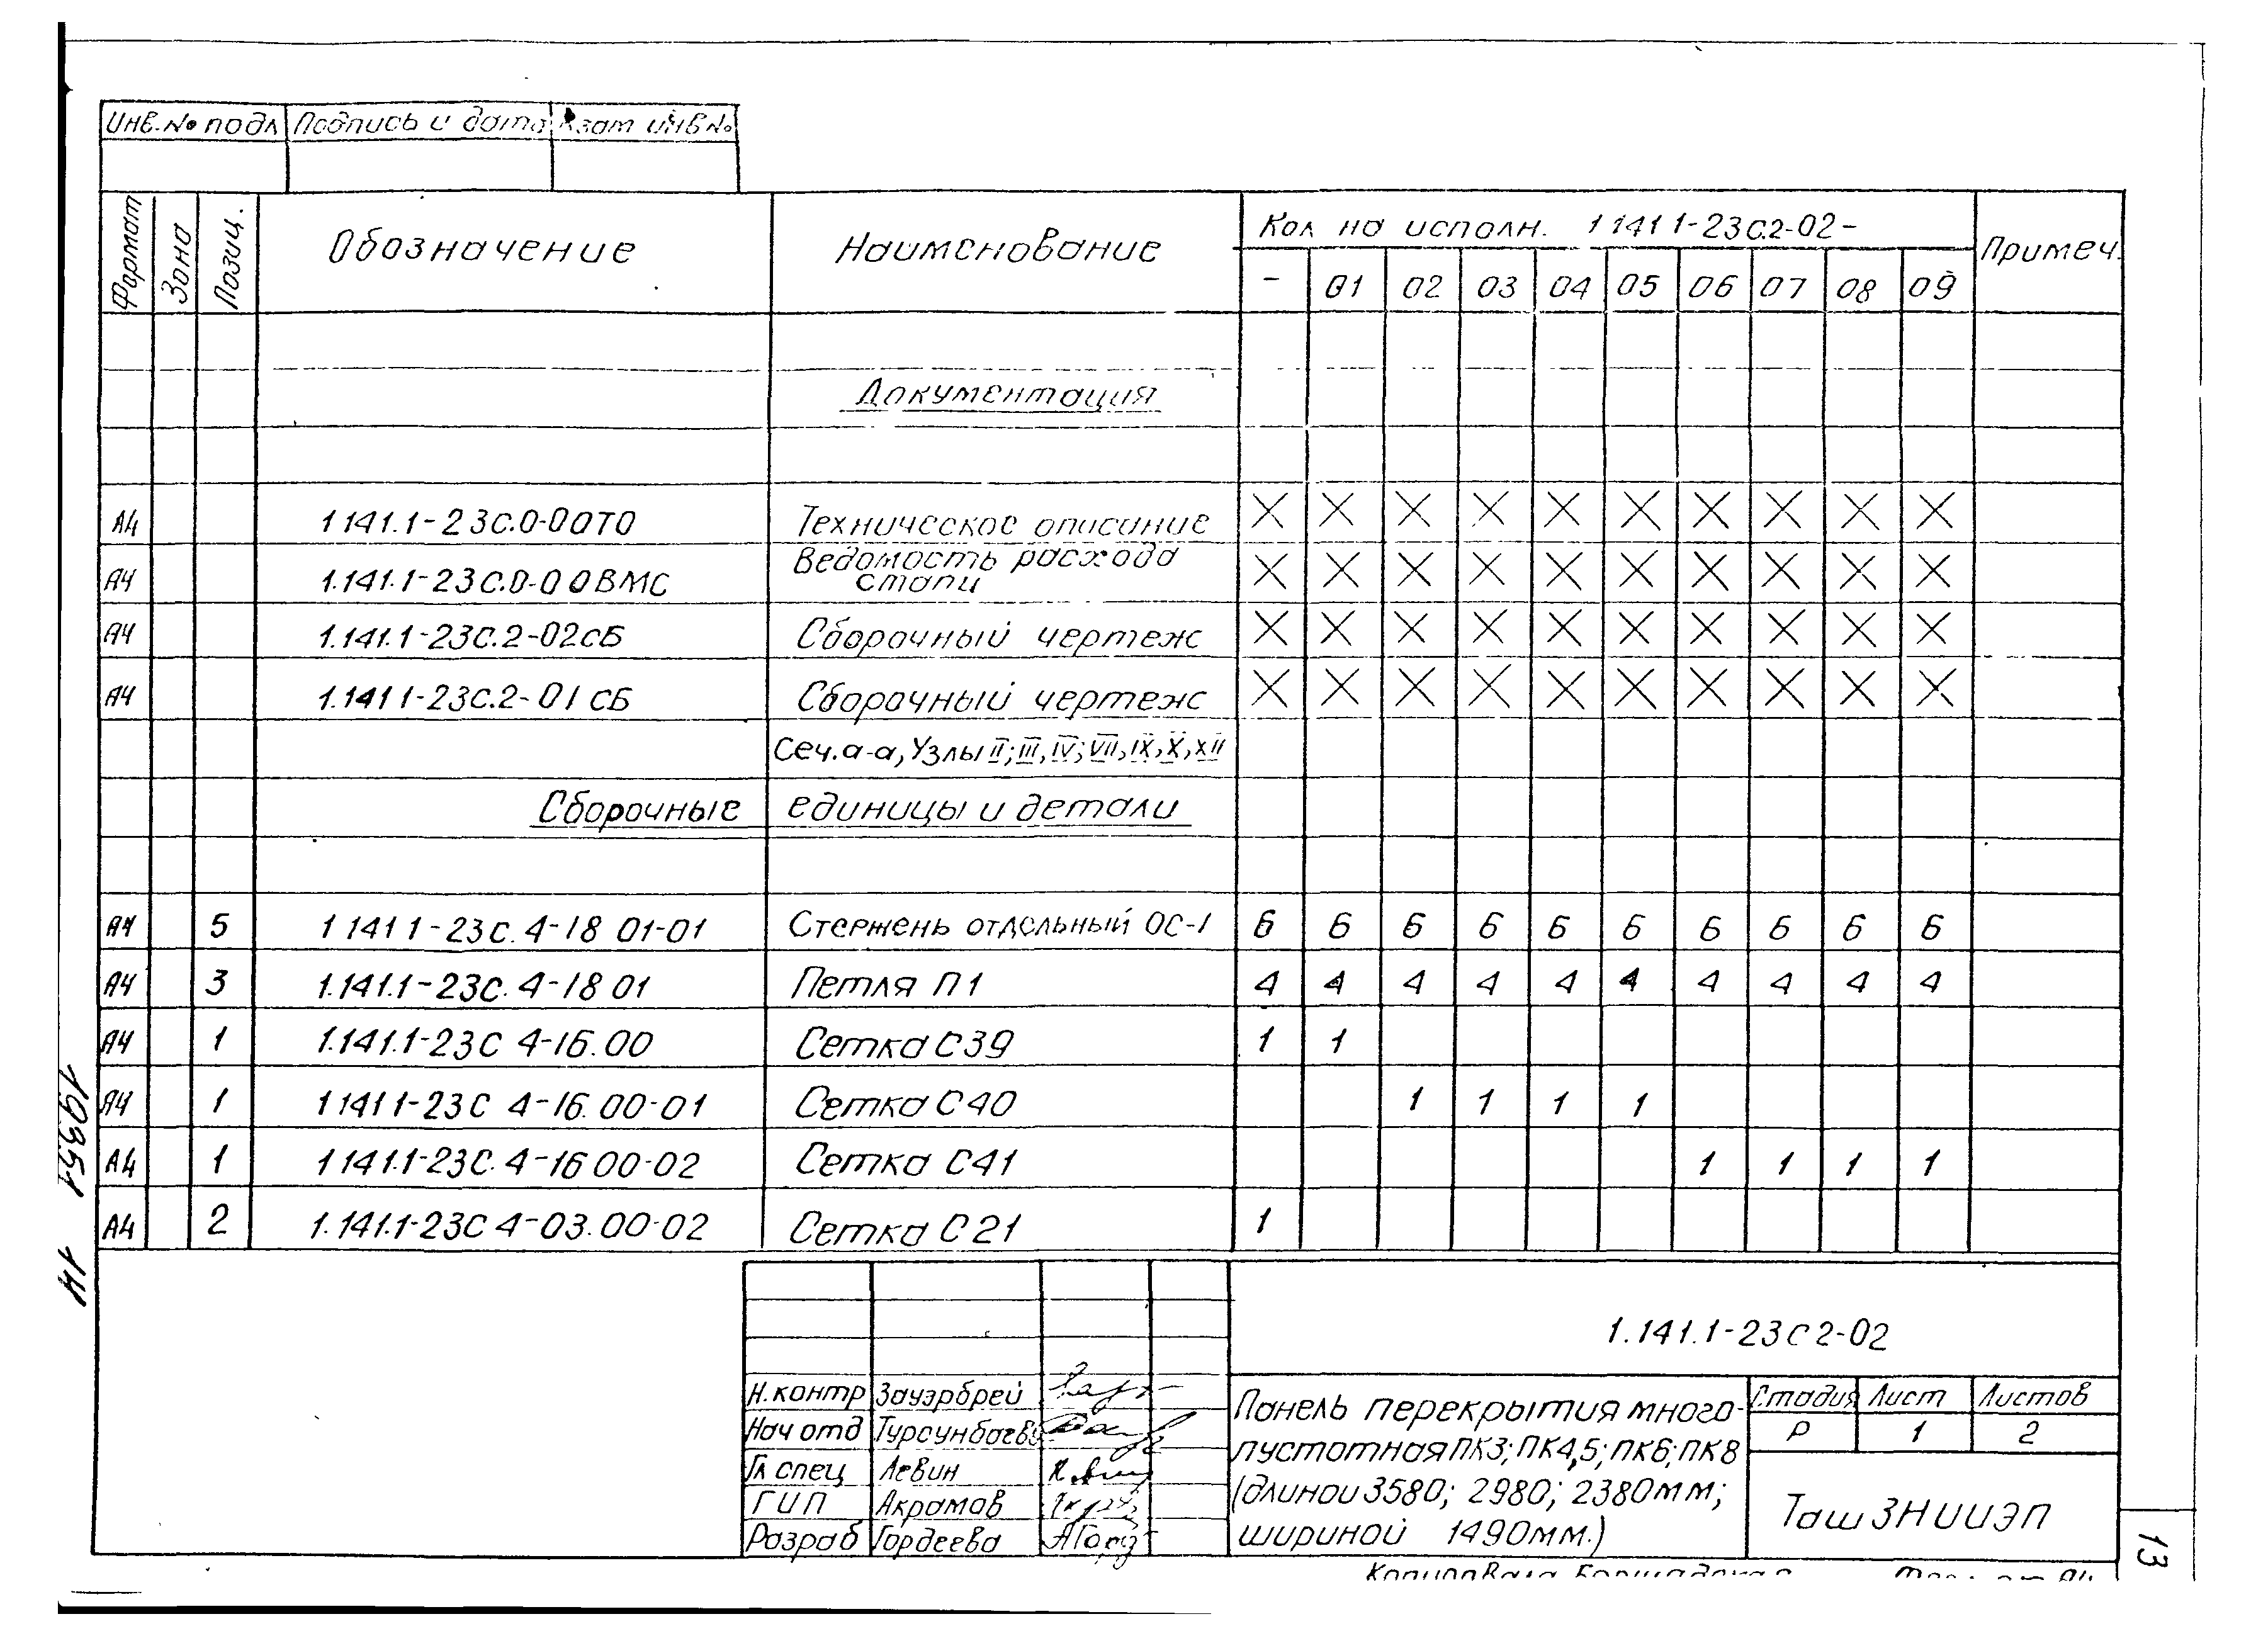 Инв.№ подл Подпись и дата Взам инв№
Формат Зона Позиц. Обозначение Наименование Кол на исполн. 1 141 1-23С.2-02- Примеч.
- 01 02 03 04 05 06 07 08 09
Документация
А4 1 141.1-23С.0-00ТО Техническое описание X X X X X X X X X X
А4 1.141.1-23С.0-00ВМС Ведомость расхода X X X X X X X X X X
стали
А4 1.141.1-23С.2-02СБ Сборочный чертеж X X X X X X X X X X
А4 1.141 1-23С.2-01СБ Сборочный чертеж X X X X X X X X X X
Сеч.а-а, Узлы II; III, IV; VII, IX, X, XII
Сборочные единицы и детали
А4 5 1 141 1-23С.4-18 01-01 Стержень отдельный ОС-1 6 6 6 6 6 6 6 6 6 6
А4 3 1.141.1-23С.4-18 01 Петля П1 4 4 4 4 4 4 4 4 4 4
А4 1 1.141.1-23С 4-16.00 Сетка С39 1 1
А4 1 1 141 1-23С 4-16.00-01 Сетка С40 1 1 1 1
А4 1 1 141.1-23С.4-16 00-02 Сетка С41 1 1 1 1
А4 2 1.141.1-23С 4-03.00-02 Сетка С21 1
1.141.1-23С 2-02
Н.контр Зауэрбрей
Нач отд Турсунбаев
Гл спец Левин
ГИП Акрамов
Разраб Гордеева
Панель перекрытия много-
пустотная ПК3; ПК4,5; ПК6; ПК8
(длиной 3580; 2980; 2380мм;
шириной 1490мм.)
Стадия Лист Листов
Р 1 2
ТашЗНИИЭП
13
19351 14
Копировала